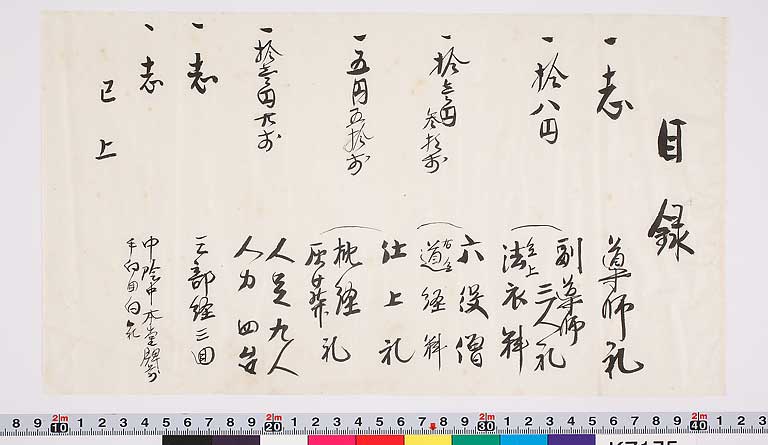 目録
一 志 導師礼
一 拾八円 副導師三人礼
仝上法衣料
一 拾壱円参拾銭 六役僧
道経料
仕上礼
一 五円五拾銭 枕経
灰葬礼
一 拾壱円九銭 人足九人
人力四台
一 志 三部経三回
一 志 中陰中本堂
已上
8 9 10 1 2 3 4 5 6 7 8 9 20 1 2 3 4 5 6 7 8 9 30 1 2 3 4 5 6 7 8 9 40 1 2 3